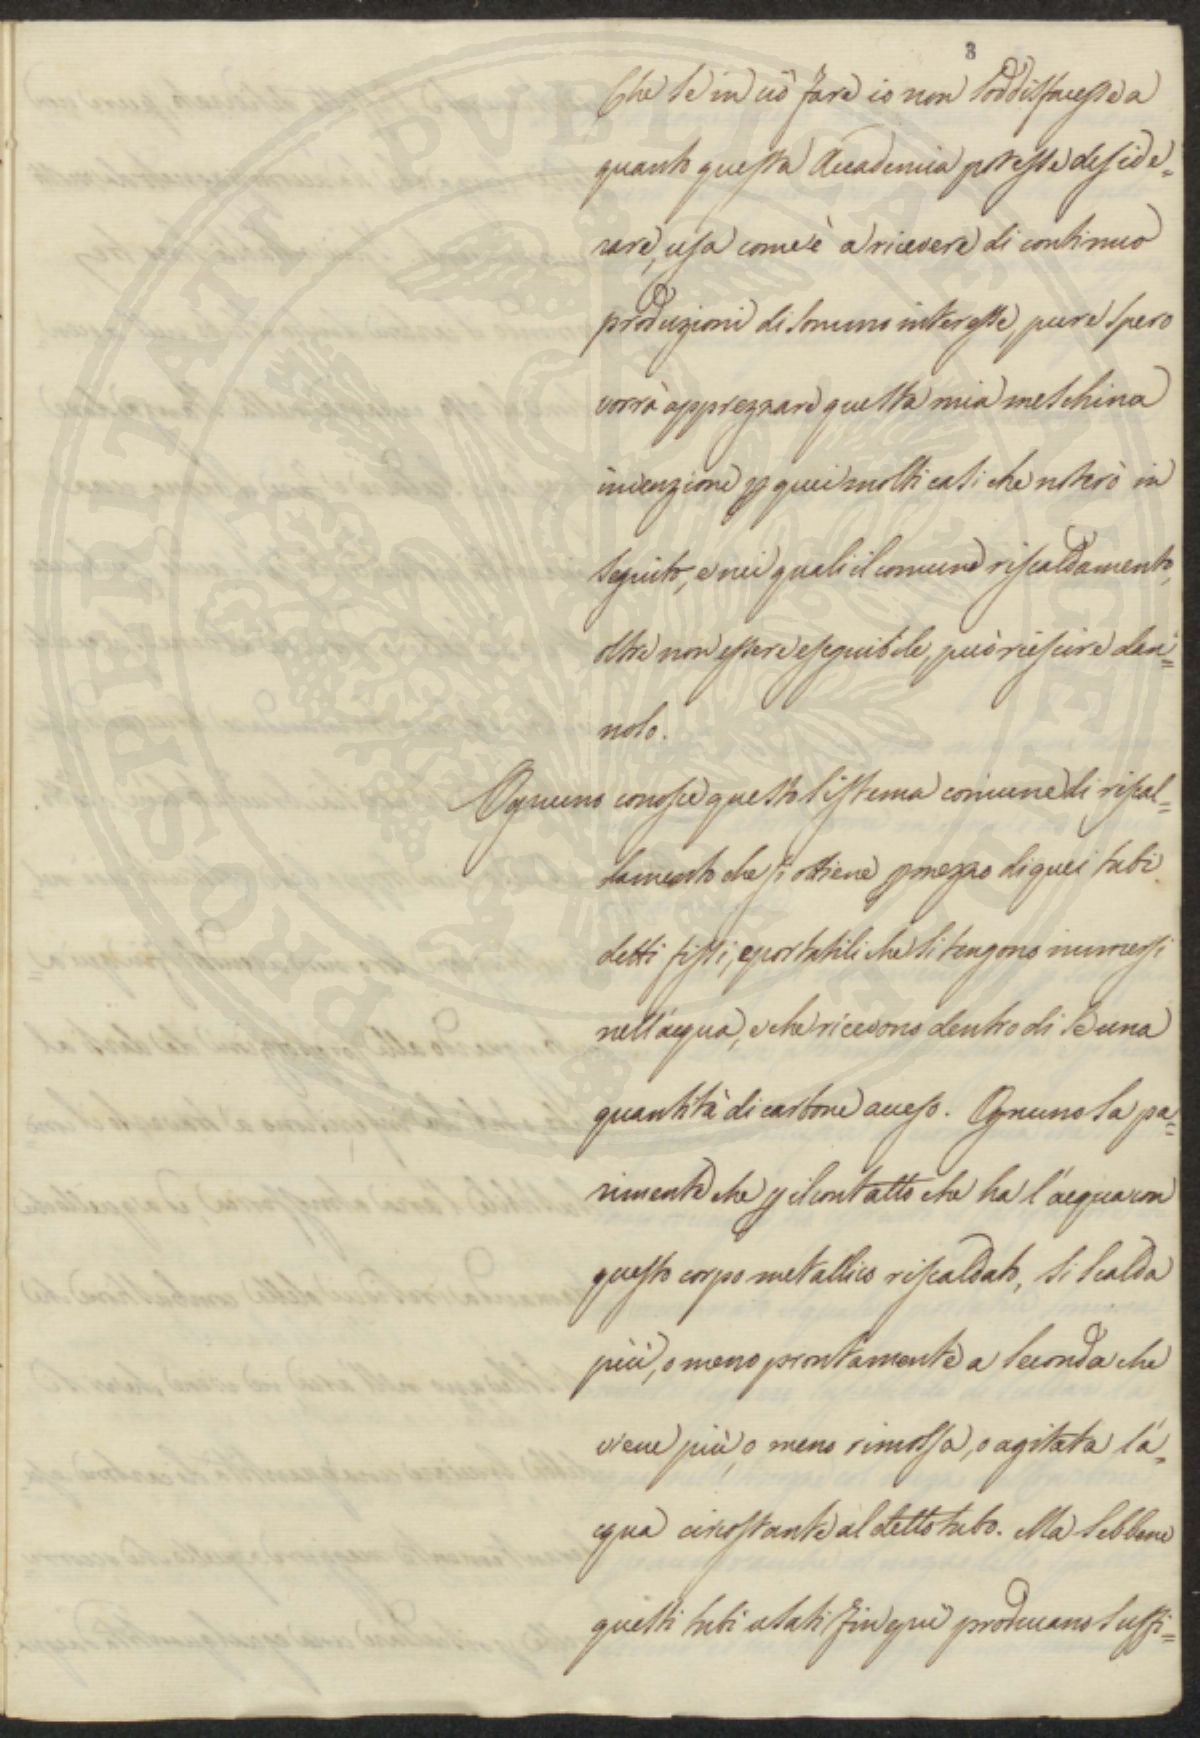 3
Che se in ciò fare io non soddisfacesse a
quanto questa Accademia potesse deside=
rare, usa com'è a ricevere di continuo
produzioni di sommo interesse, pure spero
vorrà apprezzare questa mia meschina
invenzione p quei molti casi che noterò in
seguito, e nei quali il comune riscaldamento,
oltre non essere eseguibile, può riescire dan=
noso.
Ognuno conosce questo sistema comune di riscal=
damento che si ottiene p mezzo di quei tubi
detti fissi, e portatili che si tengono immersi
nell'acqua, e che ricevono dentro di se una
quantità di carbone acceso. Ognuno sa pa=
rimente che p il contatto che ha l'acqua con
questo corpo metallico riscaldato, si scalda
più, o meno prontamente a seconda che
viene più, o meno rimossa, o agitata l'a=
cqua circostante al detto tubo. Ma sebbene
questi tubi usati fin quì producano suffi=
PROSPERITATI PVBLICAE AVGENDAE